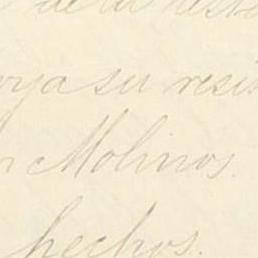 de la resi
oy a su resi
n Molinos.
hechos.